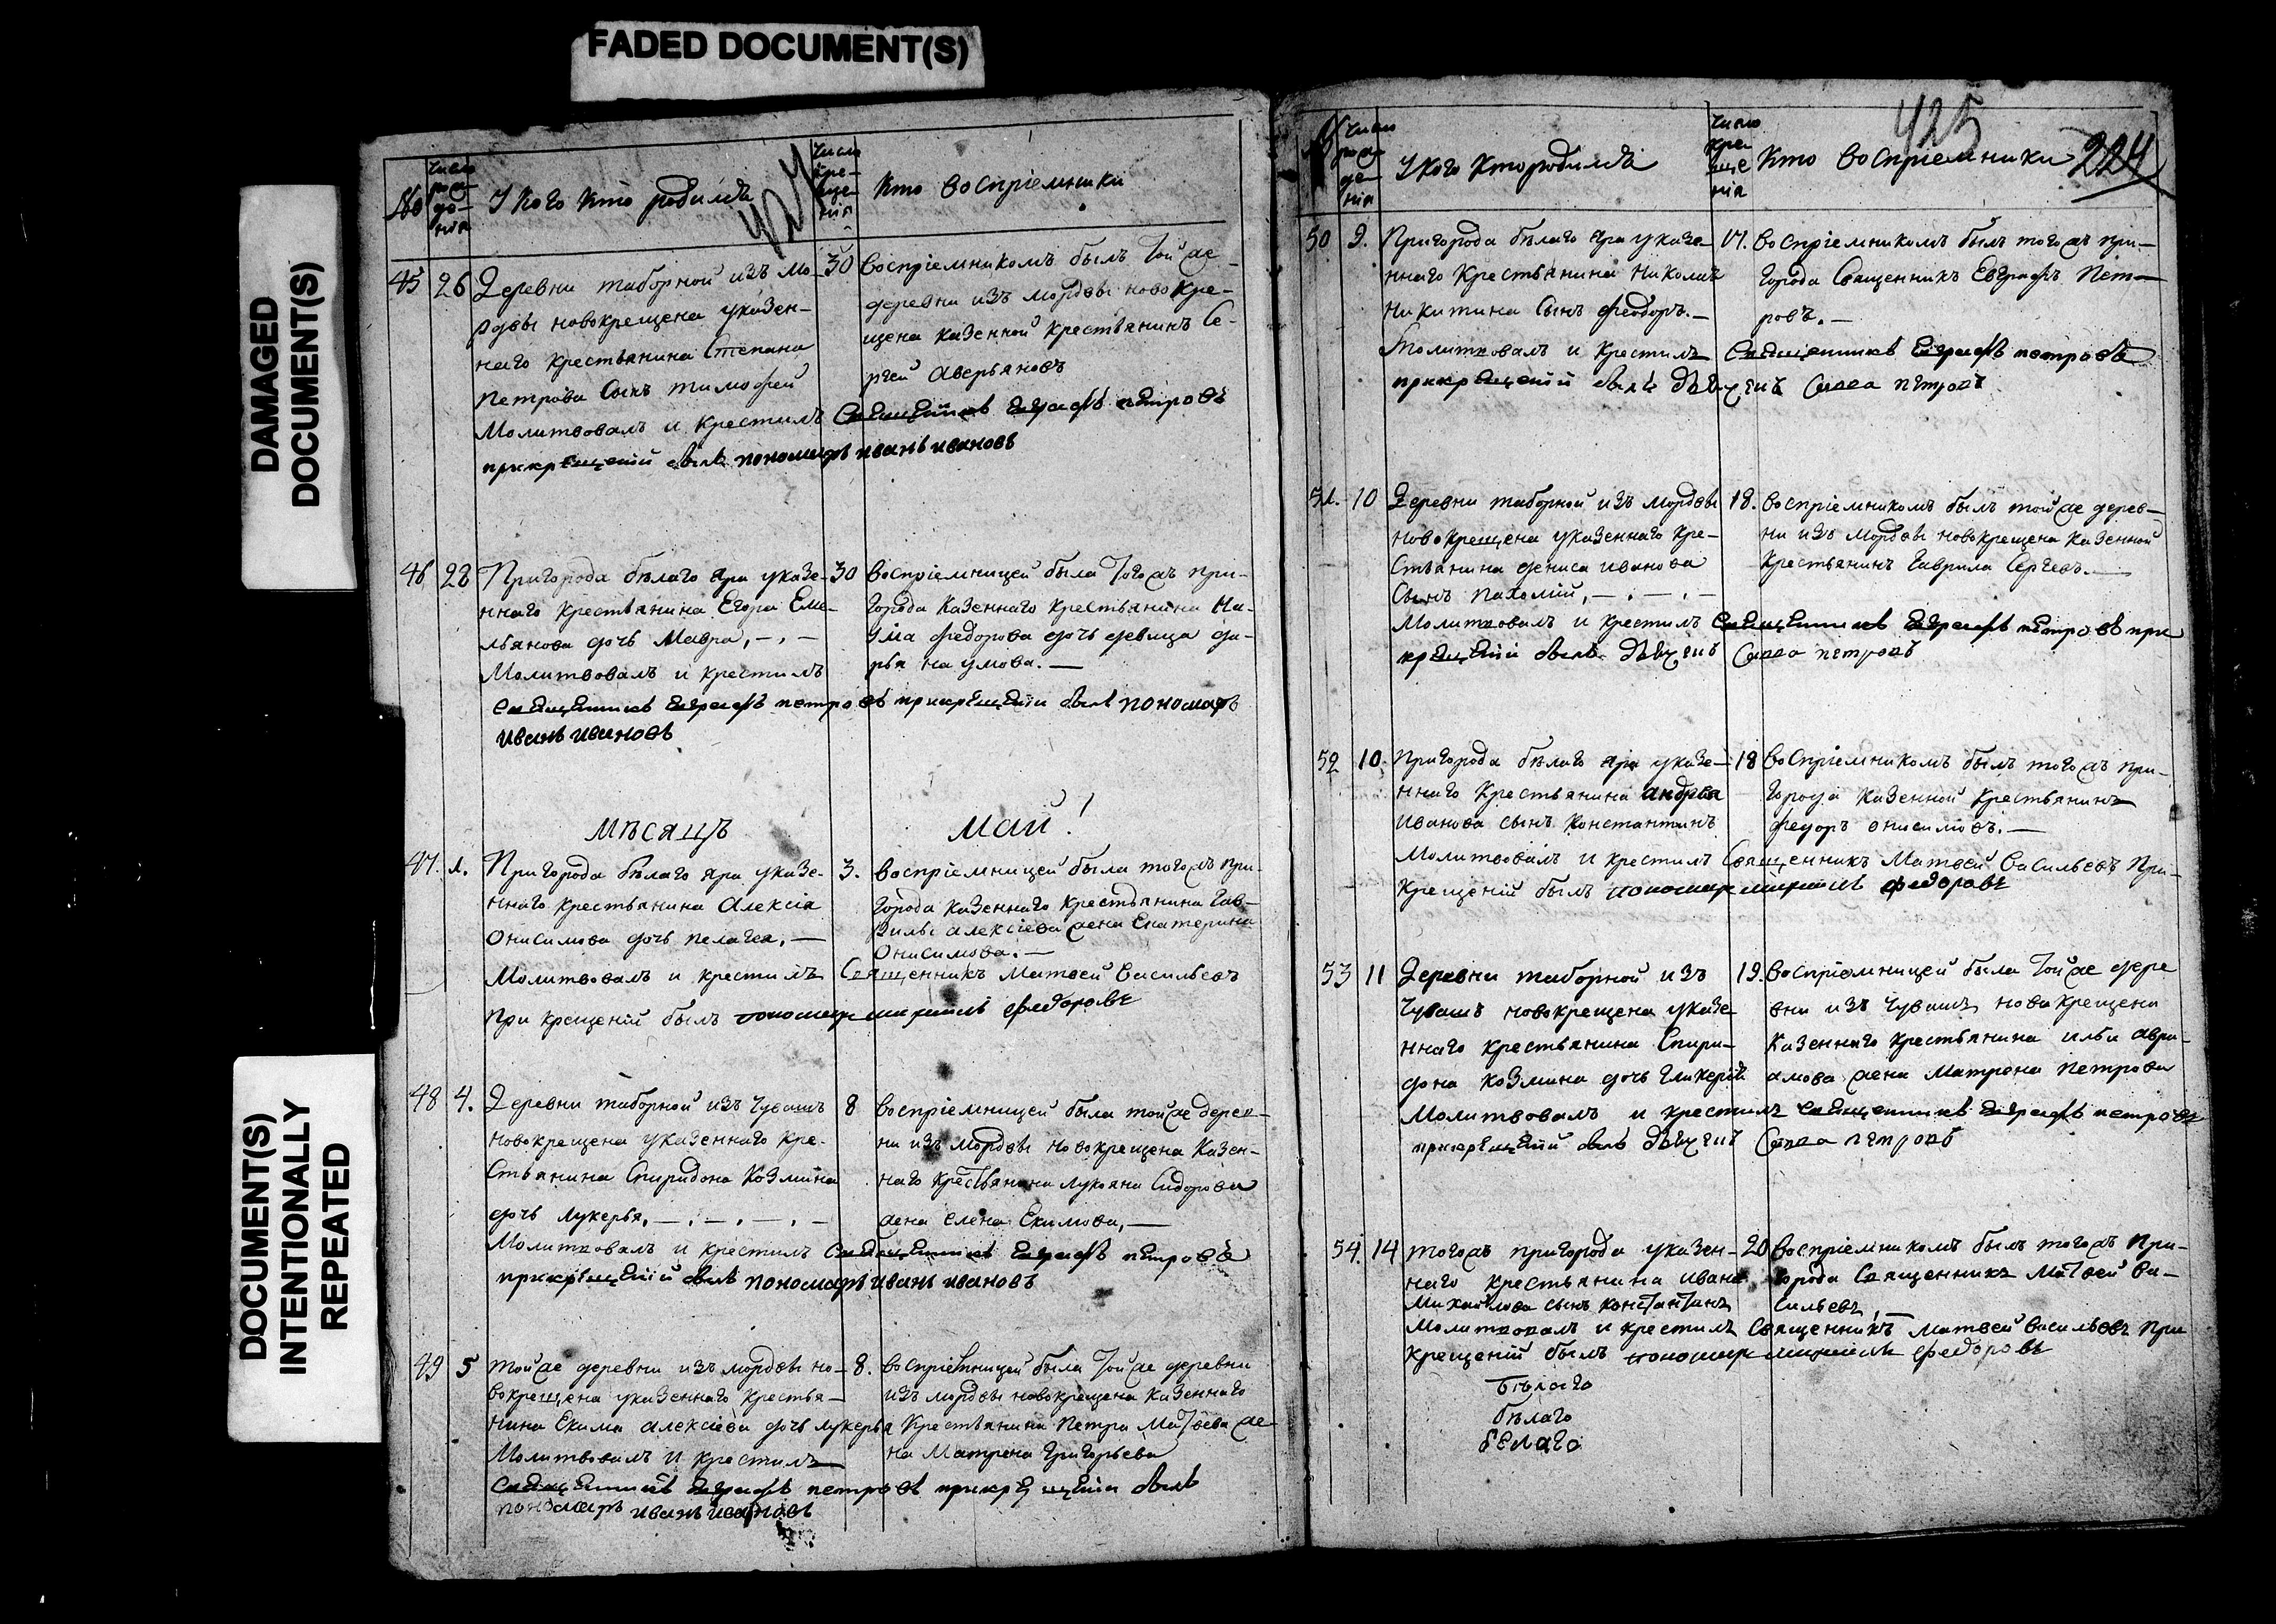 FADED DOCUMENT(S)
DAMAGED
DOCUMENT(S)
DOCUMENT(S)
INTENTIONALLY
REPEATED
424
№
число
рож-
де-
нія
У кого кто родился
число
кре-
ще-
нія
Кто воспріемники
45 26 Деревни таборной изъ Мо-
рдвы новокрещена указен-
наго крестьянина Степана
Петрова Сынъ тимофей
Молитвовалъ и крестилъ Священникъ Евграфъ петровъ
прикрещеніи былъ пономарь иванъ ивановъ
30 воспріемникомъ былъ той же
деревни изъ мордвы новокре-
щена казенной крестьянинъ Се-
ргей аверьяновъ
46 28 Пригорода бѣлаго яра указе-
ннаго крестьянина Егора Еме-
льянова дочь Мавра,
Молитвовалъ и крестилъ
священникъ Евграфъ петровъ прикрещеніи былъ пономарь
иванъ ивановъ
30 воспріемницей была тогожъ при-
города казеннаго крестьянина На-
ума федорова дочь девица да-
рья наумова. —
Мѣсяцъ Май!
47. 1. Пригорода бѣлаго яра указе-
ннаго крестьянина Алексіа
Онисимова дочь пелагея, —
Молитвовалъ и крестилъ Священникъ Матвей Васильевъ
При крещеніи былъ пономарь федоровъ
3. воспріемницей была тогожъ при-
города казеннаго крестьянина Гав-
рилы алексіева жена Екатерина
Онисимова. —
48 4. Деревни таборной изъ чувашъ
новокрещена указеннаго кре-
стьянина Спиридона Козмина
дочь лукерья,
Молитвовалъ и крестилъ Священникъ Евграфъ петровъ
прикрещеніи былъ пономарь иванъ ивановъ
8 воспріемницей была тойже дерев-
ни изъ мордвы новокрещена казен-
наго крестьянина лукояна Сидорова
жена елена Екимова, —
49 5 тойже деревни изъ мордвы но-
вокрещена указеннаго крестья-
нина Екима алексіева дочь лукерья
Молитвовалъ и крестилъ
Священникъ Евграфъ петровъ прикрещеніи былъ
пономарь иванъ ивановъ
8. воспріемницей была тойже деревни
изъ мордвы новокрещена казеннаго
крестьянина петра Матвева же-
на Матрена григорьева
425
224
число
рож-
де-
нія
У кого кто родился
число
кре-
ще-
нія
Кто воспріемники
50 9. Пригорода бѣлаго яра указе-
ннаго крестьянина николая
никитина Сынъ феодоръ. —
Молитвовалъ и крестилъ Священникъ Евграфъ петровъ
прикрещеніи былъ дьячекъ Савва петровъ
17. воспріемникомъ былъ тогожъ при-
города Священникъ Евграфъ Пет-
ровъ. —
51. 10 Деревни таборной изъ мордвы
новокрещена указеннаго кре-
стьянина дениса иванова
Сынъ пахомій,
Молитвовалъ и крестилъ священникъ Евграфъ петровъ при
крещеніи былъ дьячекъ Савва петровъ
18. воспріемникомъ былъ тойже дерев-
ни изъ мордвы новокрещена казенной
крестьянинъ гаврила Сергевъ. —
52 10. Пригорода бѣлаго яра указе-
ннаго крестьянина андрея
иванова сынъ константинъ
Молитвовалъ и крестилъ Священникъ Матвей Васильевъ при
крещеніи былъ пономарь федоровъ
18 воспріемникомъ былъ тогожъ при-
города казенной крестьянинъ
федоръ онисимовъ. —
53 11 Деревни таборной изъ
чувашъ новокрещена указе-
ннаго крестьянина Спири-
дона козмина дочь гликерія
Молитвовалъ и крестилъ священникъ Евграфъ петровъ
прикрещеніи былъ дьячекъ Савва петровъ
19. воспріемницей была тойже дере
вни изъ чувашъ новокрещена
казеннаго крестьянина ильи авра-
амова жена матрена петрова
54. 14 тогожъ пригорода указен-
наго крестьянина ивана
Михайлова сынъ константанъ
Молитвовалъ и крестилъ Священникъ матвей васильевъ При
крещеніи былъ пономарь федоровъ
20 воспріемникомъ былъ тогожъ при-
города Священникъ Матвей Ва-
сильевъ,
бѣлаго
бѣлаго
белаго